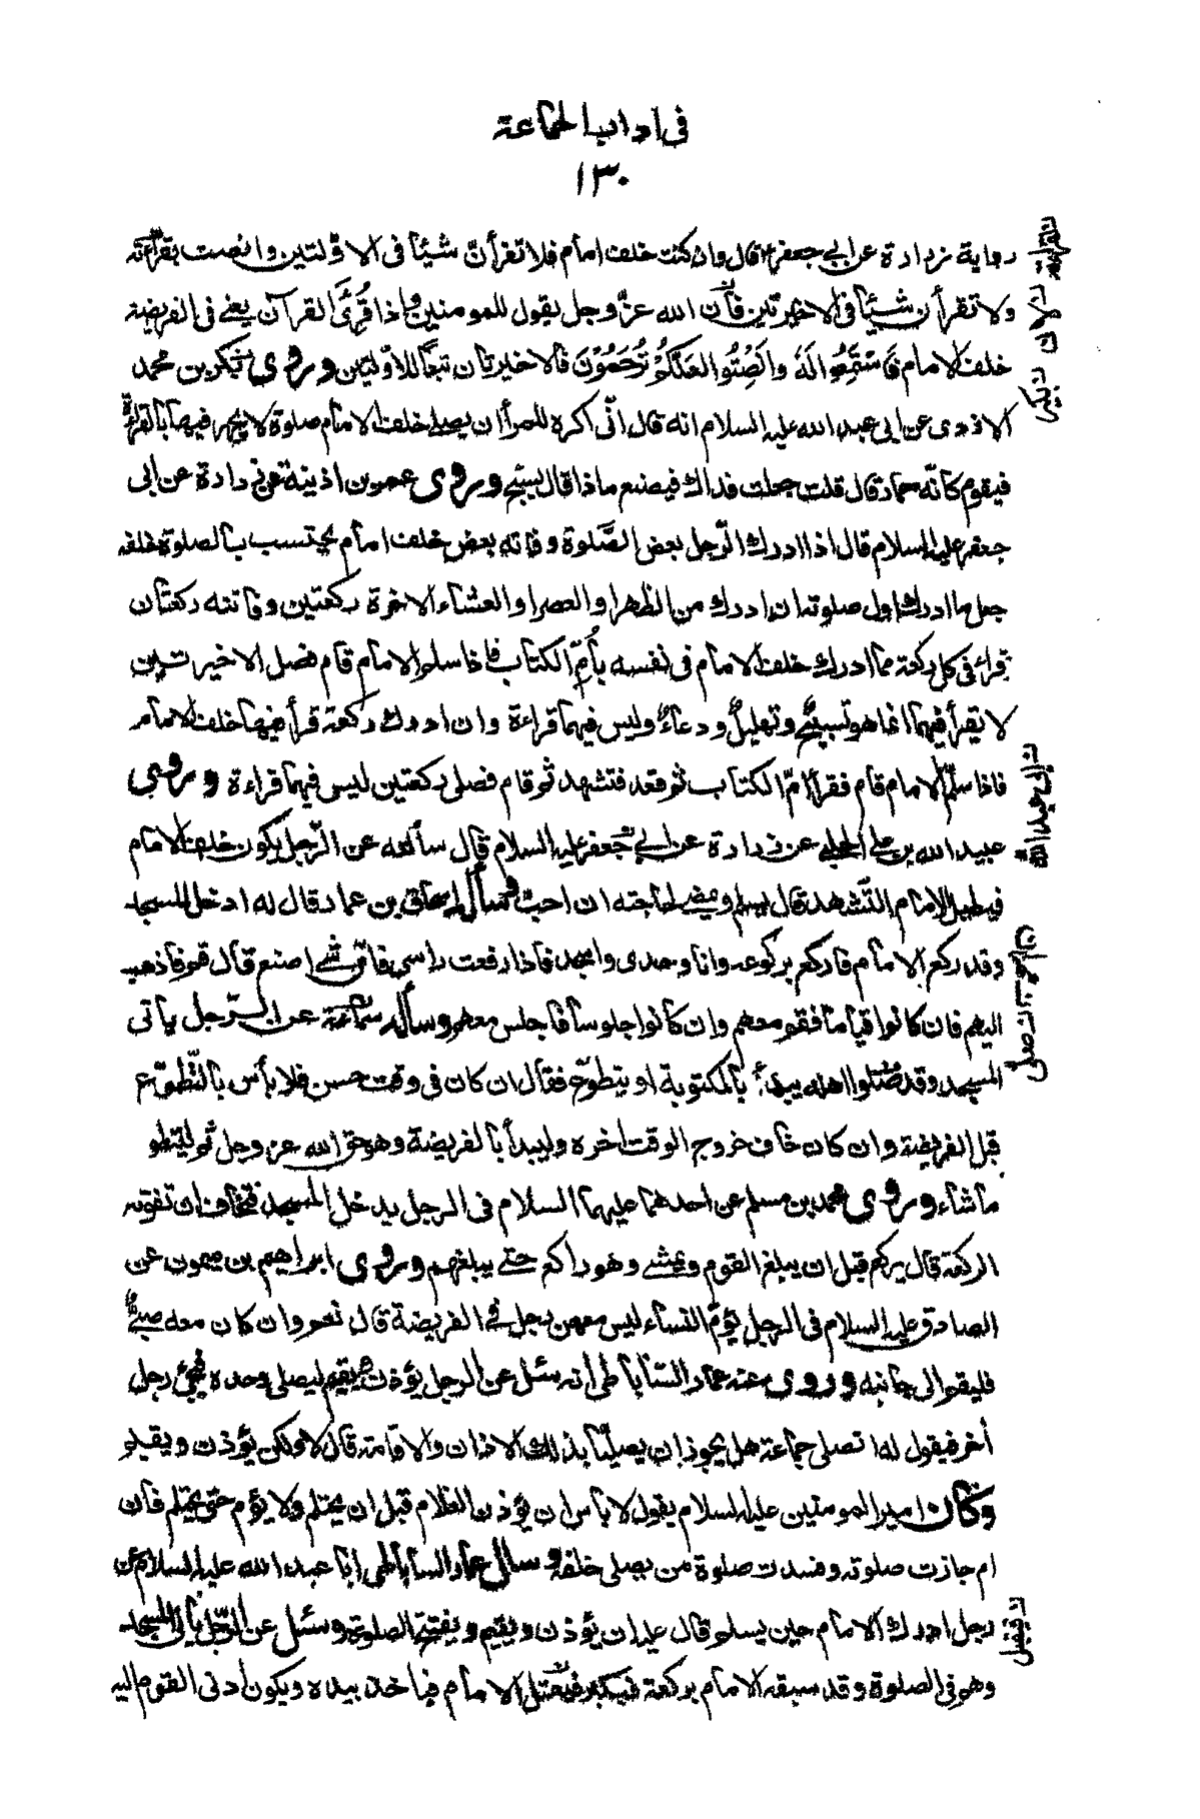 فى اداب الجماعة
١٣٠
رواية زرارة عن ابى جعفر ع قال وان كنت خلف امام فلا تقرأنّ شيئا فى الاوّلتين وانصت بقرآءته
ولا تقرأن شيئا فى الاخيرتين فأن الله عزّ وجل يقول للمومنين واذا قُرِئَ القرآن يعنى فى الفريضة
خلف الامام فَاسْتَمِعُوا لَهُ واَنْصِتُوا لعَلَّكُمْ تُرْحَمُوْنَ فالاخيرتان تبعًا للاوّلتين وروى بكر بن محمد
الازدى عن ابى عبد الله عليه السلام انه قال انّى اكره للمرأ ان يصلى خلف الامام صلوة لا يجهر فيها بالقراءة
فيقوم كانّه حمار قال قلت جعلت فداك فيصنع ما ذا قال يسبّح وروى عمر بن اذينة عن زرارة عن ابى
جعفر عليه السلام قال اذا ادرك الرّجل بعض الصَّلوة وفاته بعض خلف امام يحتسب بالصلوة خلفه
جعل ما ادرك اول صلوته ان ادرك من الظهر او العصر او العشاء الاخرة ركعتين وفاتته ركعتان
قرأ فى كل ركعة مما ادرك خلف الامام فى نفسه بأُمّ الكتاب فاذا سلم الامام قام فصل الاخيرتين
لا يقرأ فيهما انما هو تسبيحٌ وتهليلٌ ودعاءٌ وليس فيهما قراءة وان ادرك ركعة قرأ فيها خلف الامام
فاذا سلّم الامام قام فقرأ امّ الكتاب ثم قعد فتشهد ثم قام فصلى ركعتين ليس فيهما قراءة وروى
عبيد الله بن على الحلبى عن زرارة عن ابى جعفر عليه السلام قال سألته عن الرّجل يكون خلف الامام
فيطيل الامام التّشهد قال يسلم ويمضى لحاجته ان احبّ وسأل اسحاق بن عمار قال له ادخل المسجد
وقد ركع الامام فاركع بركوعه وانا وحدى واسجد فاذا رفعت راسى فاىّ شىء اصنع قال قم فاذهب
اليهم فان كانوا قياما فقم معهم وان كانوا جلوسا فاجلس معهم وسأله سماعة عن الرّجل ياتى
المسجد وقد صلّوا اهله يبدأ بالمكتوبة او يتطوّع فقال ان كان فى وقت حسن فلا بأس بالتّطوّع
قبل الفريضة وان كان خاف خروج الوقت اخره وليبدأ بالفريضة وهو حق الله عز وجل ثم ليتطوع
ما شاء وروى محمد بن مسلم عن احدهما عليهما السلام فى الرجل يدخل المسجد فيخاف ان تفوته
الركعة قال يركع قبل ان يبلغ القوم ويمشى وهو راكع حتى يبلغهم وروى ابراهيم بن ميمون عن
الصادق عليه السلام فى الرجل يؤمّ النساء ليس معهن رجل فى الفريضة قال نعم وان كان معه صبىٌّ
فليقم الى جانبه وروى عنه عمار السّاباطى انه سئل عن الرجل يؤذن ويقيم ليصلى وحده فيجئ رجل
أخر فيقول له اتصلى جماعة هل يجوز ان يصليّا بذلك الاذان والاقامة قال لا ولكن يؤذن ويقيم
وكان امير المومنين عليه السلام يقول لا باس ان يؤذن الغلام قبل ان يحتلم ولا يؤم حتى يحتلم فان
ام جازت صلوته وفسدت صلوة من يصلى خلفه وسال عمار الساباطى ابا عبد الله عليه السلام عن
رجل ادرك الامام حين يسلم قال عليه ان يؤذن ويقيم ويفتتح الصلوة وسئل عن الرّجل ياتى المسجد
وهم فى الصلوة وقد سبقه الامام بركعة فيكبّر فيعتل الامام فياخذ بيده ويكون ادنى القوم اليه